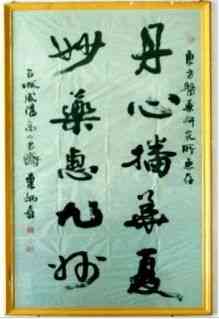 東方醫藥研究所惠存
丹心播華夏
妙藥惠九州
古城咸陽